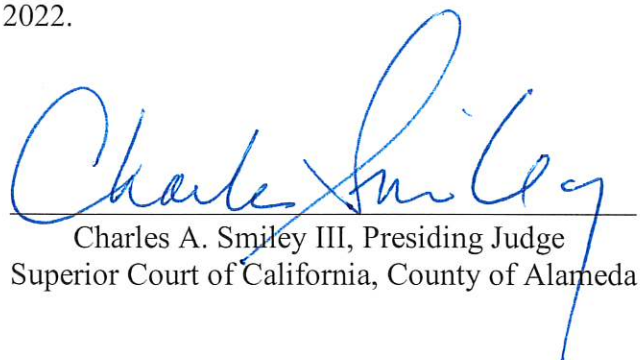 2022.
Charles Smiley
Charles A. Smiley III, Presiding Judge
Superior Court of California, County of Alameda